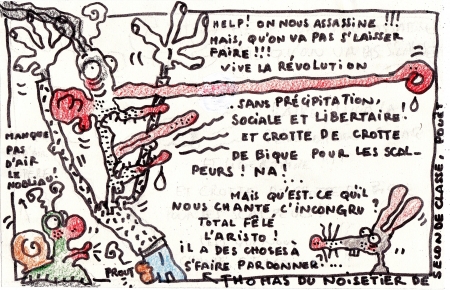 HELP! ON NOUS ASSASSINE !!!
MAIS, QU'ON VA PAS S'LAISSER
FAIRE !!!
VIVE LA RÉVOLUTION
SANS PRÉCIPITATION,
SOCIALE ET LIBERTAIRE!
ET CROTTE DE CROTTE
DE BIQUE POUR LES SCOL-
PEURS! NA!...
MAIS QU'EST-CE QU'IL
NOUS CHANTE C'INCONGRU?
TOTAL FÊLÉ
L'ARISTO!
IL A DES CHOSES À
S'FAIRE PARDONNER?...
MANQUE
PAS
D'AIR
LE
NOBLIAU!
PROUT
THOMAS DU NOISETIER DE
SECON DE CLASSE, POUET